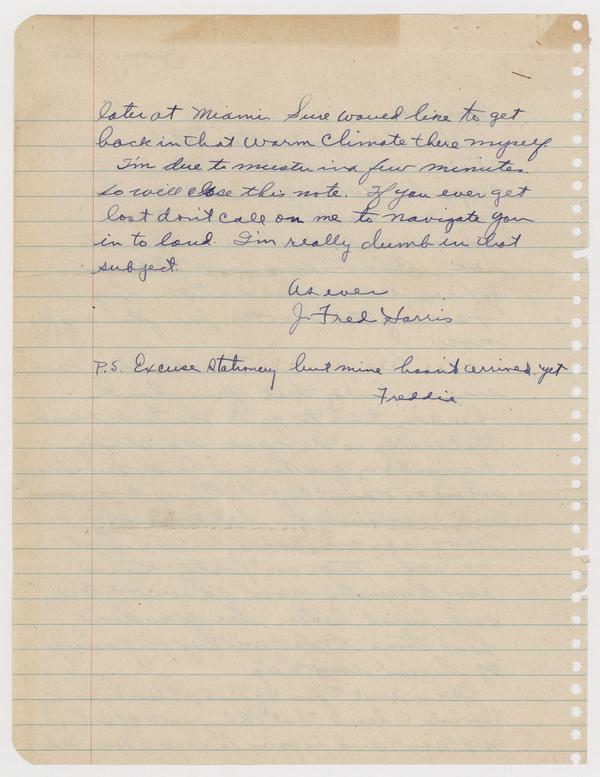 later at Miami. Sure would like to get
back in that warm climate there myself.
I'm due to muster in a few minutes
so will close this note. If you ever get
lost don't call on me to navigate you
in to land. I'm really dumb in that
subject.
As ever
J. Fred Harris
P.S. Excuse Stationery but mine hasn't arrived yet
Freddie